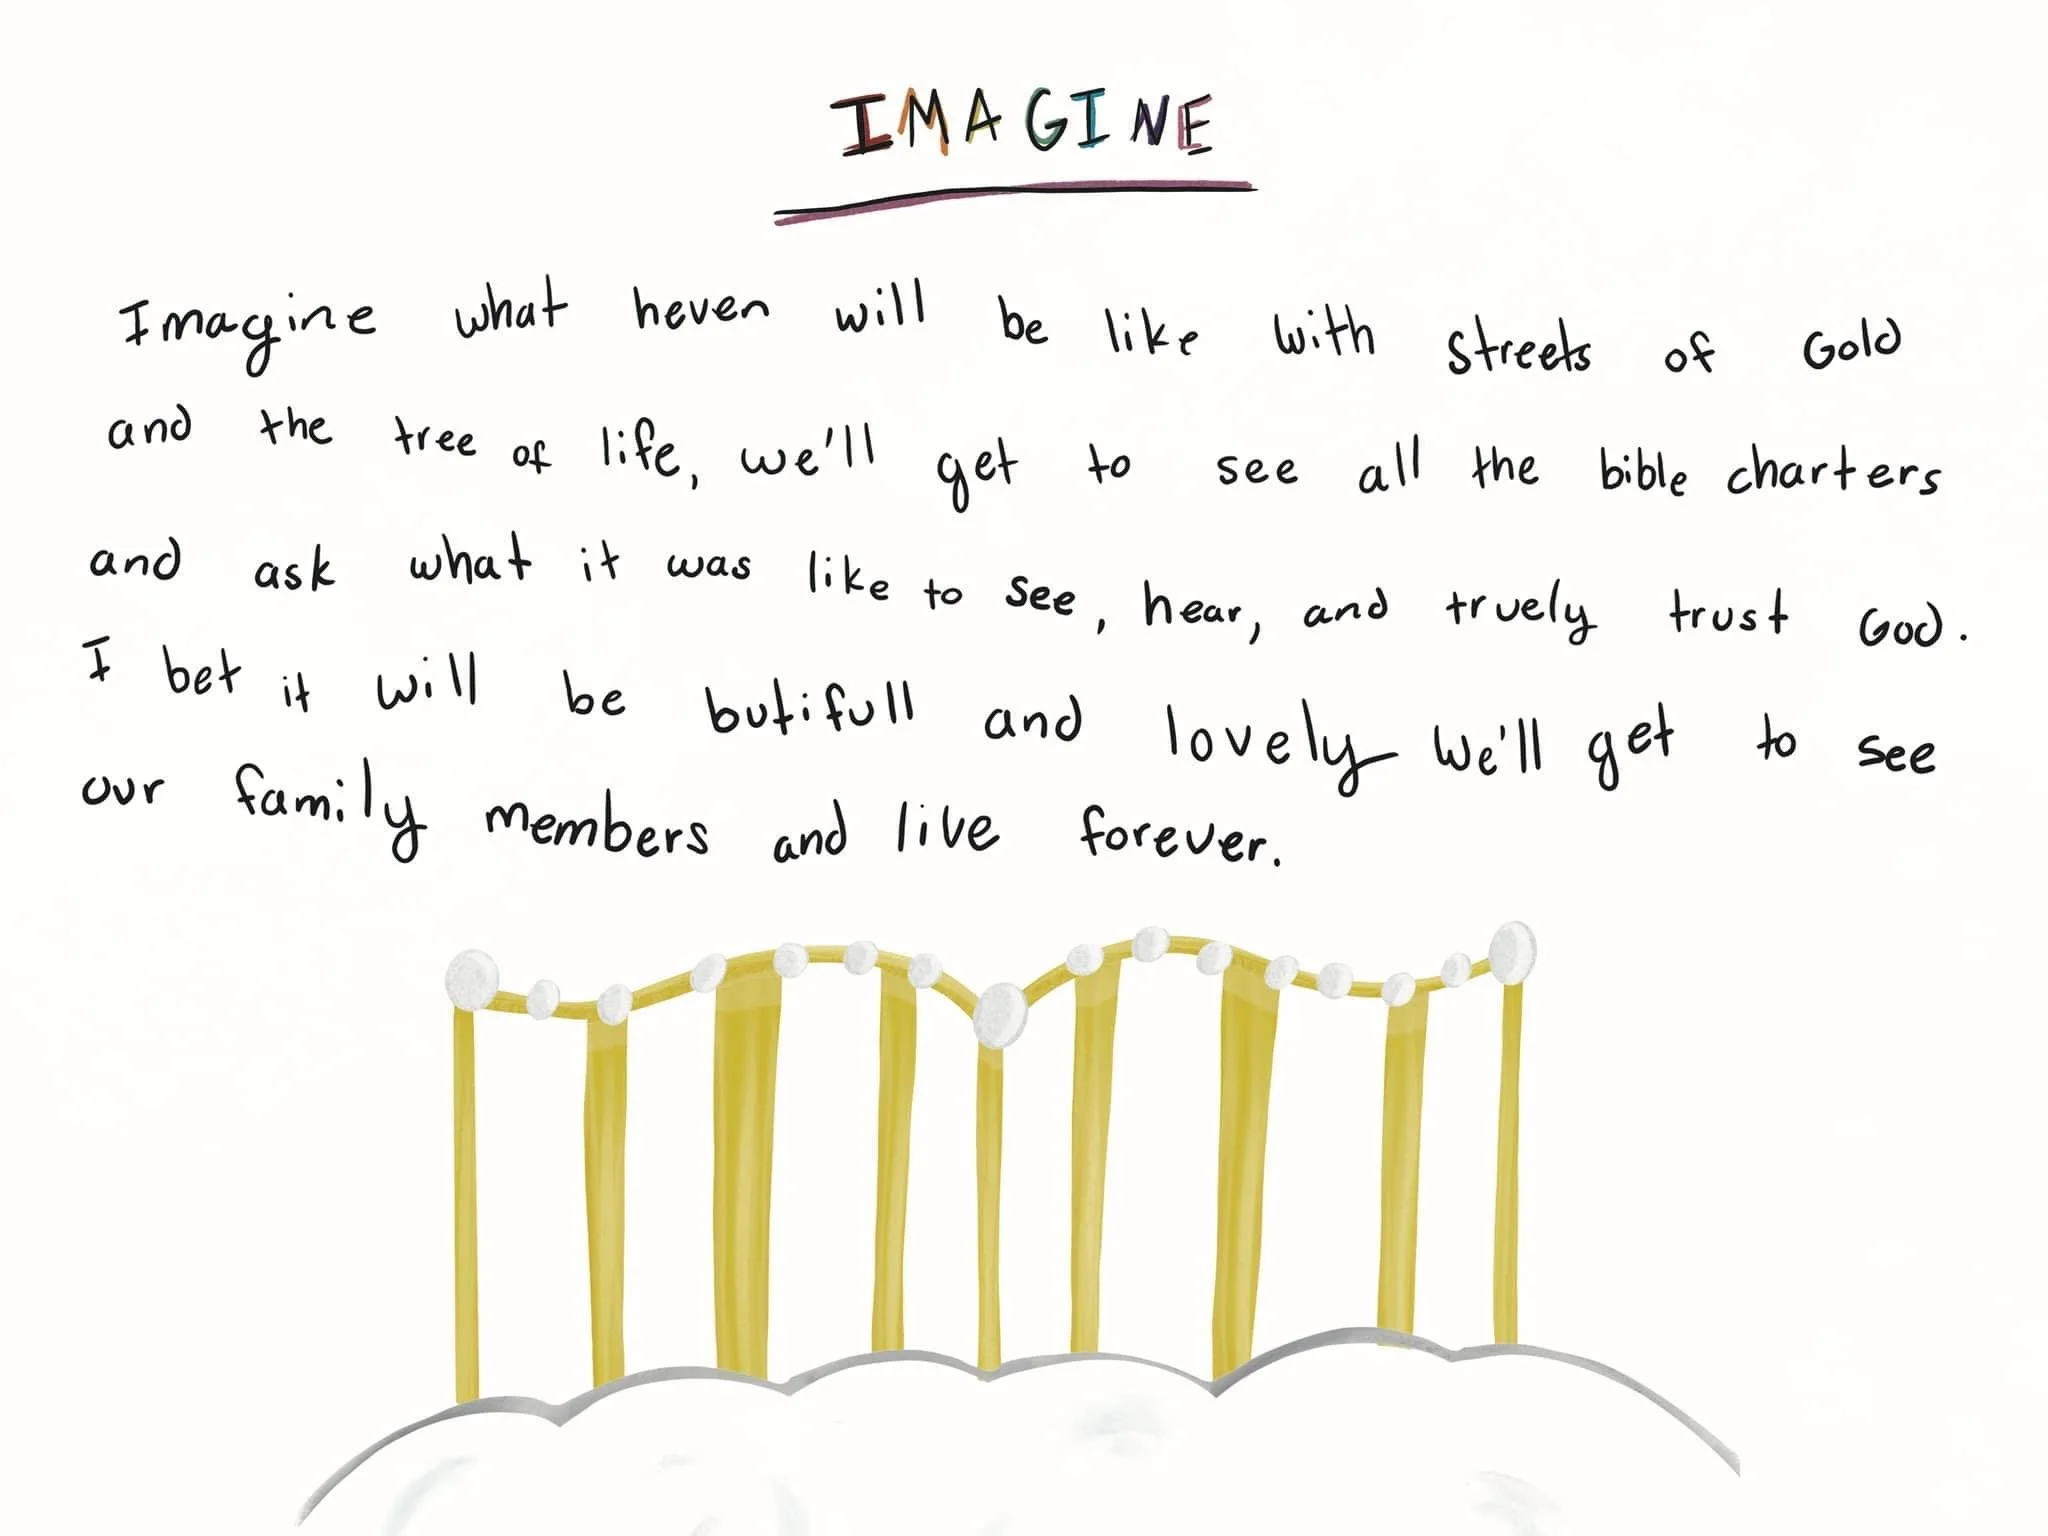 IMAGINE
Imagine what heven will be like with streets of Gold
and the tree of life, we'll get to see all the bible charters
and ask what it was like to see, hear, and truely trust God.
I bet it will be butifull and lovely we'll get to see
our family members and live forever.